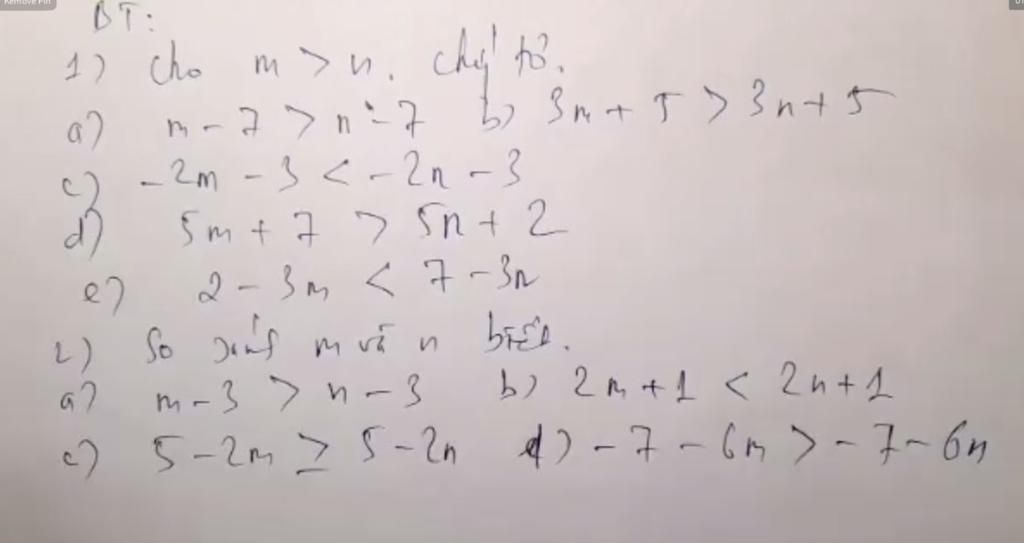 Remove Pin
BT:
1) Cho m > n. chứng tỏ.
a) m - 7 > n - 7 b) 3m + 5 > 3n + 5
c) -2m - 3 < -2n - 3
d) 5m + 7 > 5n + 2
e) 2 - 3m < 7 - 3n
2) So sánh m và n biết.
a) m - 3 > n - 3 b) 2m + 1 < 2n + 1
c) 5 - 2m ≥ 5 - 2n d) -7 - 6m > -7 - 6n